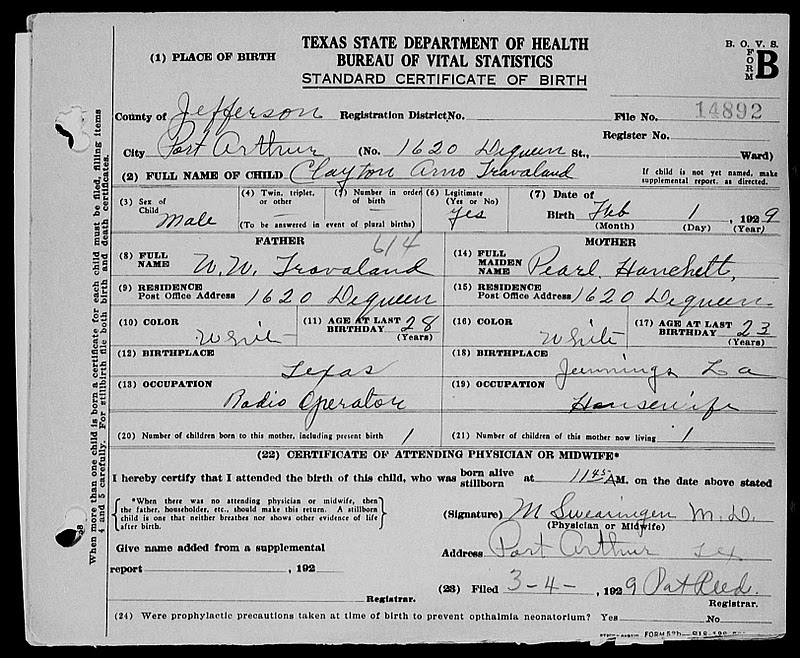 TEXAS STATE DEPARTMENT OF HEALTH
BUREAU OF VITAL STATISTICS
STANDARD CERTIFICATE OF BIRTH
B. O. V. S.
FORM B
(1) PLACE OF BIRTH
County of Jefferson Registration District No. File No. 14892
Register No.
City Port Arthur (No. 1620 Dequeen St., Ward)
(2) FULL NAME OF CHILD Clayton Arno Travaland If child is not yet named, make supplemental report, as directed.
(3) Sex of Child Male (4) Twin, triplet, or other — (5) Number in order of birth — (6) Legitimate (Yes or No) Yes (7) Date of Birth Feb 1, 1929
(To be answered in event of plural births) (Month) (Day) (Year)
FATHER 614 MOTHER
(8) FULL NAME W. W. Travaland (14) FULL MAIDEN NAME Pearl Hanchett,
(9) RESIDENCE Post Office Address 1620 Dequeen (15) RESIDENCE Post Office Address 1620 Dequeen
(10) COLOR White (11) AGE AT LAST BIRTHDAY 28 (Years) (16) COLOR White (17) AGE AT LAST BIRTHDAY 23 (Years)
(12) BIRTHPLACE Texas (18) BIRTHPLACE Jennings La
(13) OCCUPATION Radio Operator (19) OCCUPATION Housewife
(20) Number of children born to this mother, including present birth 1 (21) Number of children of this mother now living 1
(22) CERTIFICATE OF ATTENDING PHYSICIAN OR MIDWIFE*
I hereby certify that I attended the birth of this child, who was born alive stillborn at 11 45 AM. on the date above stated
*When there was no attending physician or midwife, then the father, householder, etc., should make this return. A stillborn child is one that neither breathes nor shows other evidence of life after birth.
(Signature) M Swearingen M. D.
(Physician or Midwife)
Give name added from a supplemental
report , 192
Address Port Arthur Tex
Registrar.
(23) Filed 3-4-, 1929 Pat Reed.
Registrar.
(24) Were prophylactic precautions taken at time of birth to prevent opthalmia neonatorium? Yes No
When more than one child is born a certificate for each child must be filed, filling items
4 and 5 carefully. For stillbirth file both birth and death certificates.